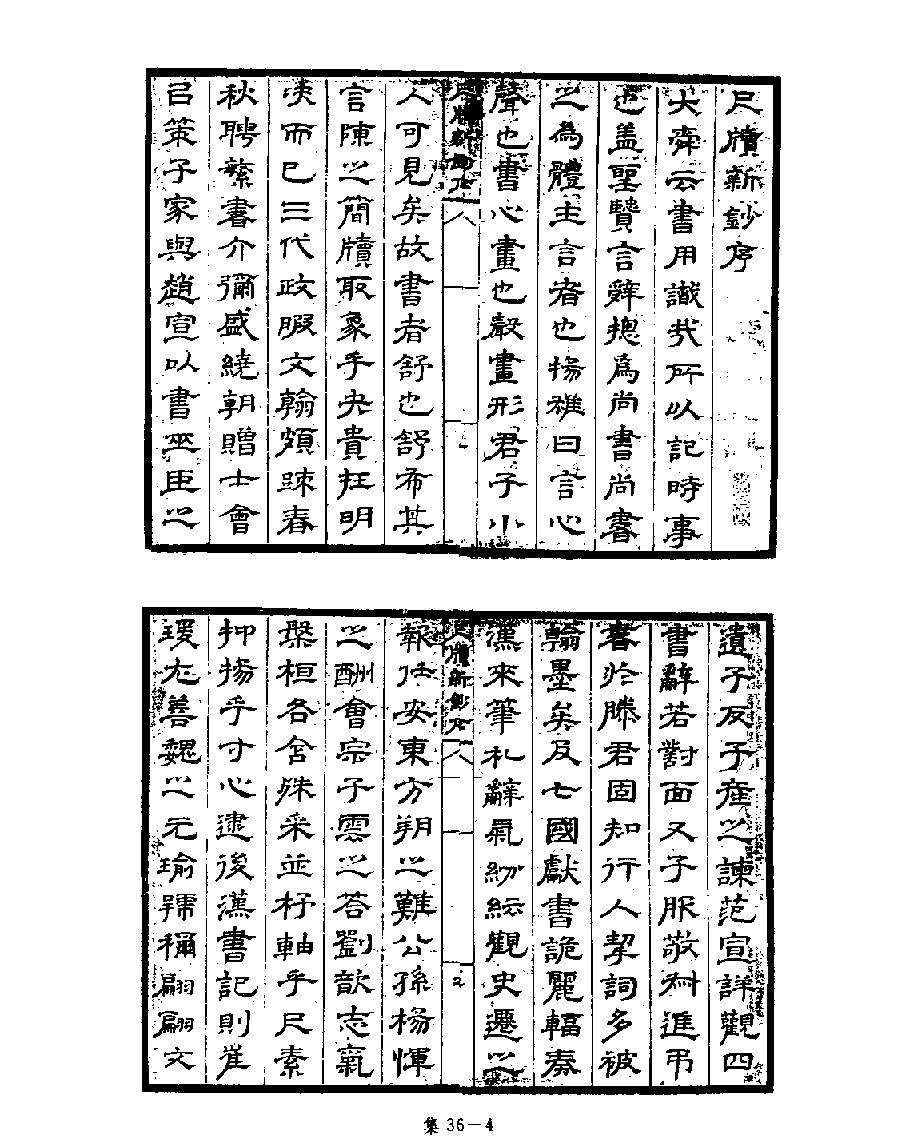 尺牘新鈔序
大舜云書用識哉所以記時事
也盖聖賢言辭揔爲尚書尚書
之為體主言者也揚雄曰言心
聲也書心畫也聲畫形君子小
尺牘新鈔序
一
人可見矣故書者舒也舒布其
言陳之簡牘取象乎夬貴在明
决而已三代政暇文翰頗踈春
秋聘蘩書介彌盛繞朝贈士會
㠯策子家與趙宣以書巫臣之
遺子反子產之諫范宣詳觀四
書辭若對面又子服敬叔進弔
書於滕君固知行人挈詞多被
翰墨矣及七國獻書詭麗輻奏
漢來筆札辭氣紛紜觀史遷之
尺牘新鈔序
二
報任安東方朔之難公孫楊惲
之酬會宗子雲之答劉歆志氣
槃桓各含殊采並杼軸乎尺素
抑揚乎寸心逮後漢書記則崔
瑗尤善魏之元瑜號稱翩翩文
集 36－4